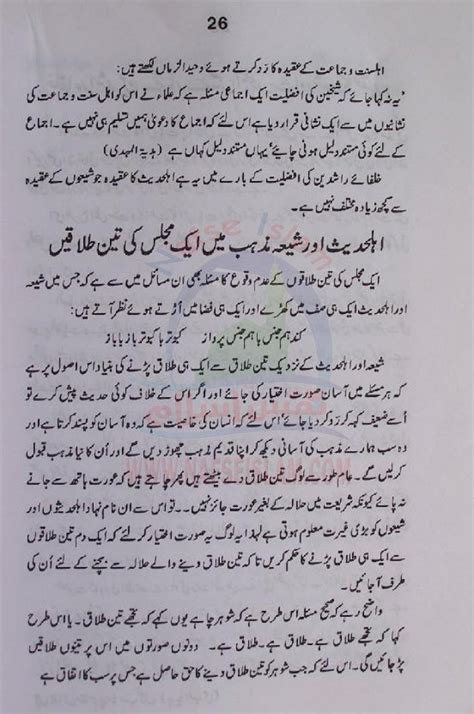 26
اہلسنت و جماعت کے عقیدہ کا رد کرتے ہوئے وحید الزماں لکھتے ہیں:
'یہ نہ کہا جائے کہ شیخین کی افضلیت ایک اجماعی مسئلہ ہے کہ علماء نے اس کو اہل سنت و جماعت کی
نشانیوں میں سے ایک نشانی قرار دیا ہے اس لئے کہ اجماع کا دعویٰ ہمیں تسلیم ہی نہیں ہے۔ اجماع
کے لئے کوئی مستند دلیل ہونی چاہیے' یہاں مستند دلیل کہاں ہے (ہدیۃ المہدی)
خلفائے راشدین کی افضلیت کے بارے میں یہ ہے اہلحدیث کا عقیدہ جو شیعوں کے عقیدہ
سے کچھ زیادہ مختلف نہیں ہے۔
اہلحدیث اور شیعہ مذہب میں ایک مجلس کی تین طلاقیں
ایک مجلس کی تین طلاقوں کے عدم وقوع کا مسئلہ بھی ان مسائل میں سے ہے کہ جس میں شیعہ
اور اہلحدیث ایک ہی صف میں کھڑے اور ایک ہی فضا میں اُڑتے ہوئے نظر آتے ہیں:
کند ہم جنس با ہم جنس پرواز کبوتر با کبوتر باز با باز
شیعہ اور اہلحدیث کے نزدیک تین طلاق سے ایک ہی طلاق پڑنے کی بنیاد اس اصول پر ہے
کہ ہر مسئلے میں آسان صورت اختیار کی جائے اور اگر اس کے خلاف کوئی حدیث پیش کرے تو
اُسے ضعیف کہہ کر رد کر دیا جائے' اس لئے کہ انسان کی خاصیت ہے کہ وہ آسان کو پسند کرتا ہے اور
وہ سب ہمارے مذہب کی آسانی دیکھ کر اپنا قدیم مذہب چھوڑ دیں گے اور اُن کا نیا مذہب قبول
کر لیں گے۔ عام طور سے لوگ تین طلاق دے بیٹھتے ہیں پھر چاہتے ہیں کہ عورت ہاتھ سے جانے
نہ پائے کیونکہ شریعت میں حلالہ کے بغیر عورت جائز نہیں۔۔ تو اس سے ان نام نہاد اہلحدیثوں اور
شیعوں کو بڑی غیرت معلوم ہوتی ہے لہذا یہ لوگ یہ صورت اختیار کر گئے کہ ایک دم تین طلاقوں
سے ایک ہی طلاق پڑنے کا حکم کریں تا کہ تین طلاق دینے والے حلالہ سے بچنے کے لئے اُن کی
طرف آ جائیں۔
واضح رہے کہ صحیح مسئلہ اس طرح ہے کہ شوہر چاہے یوں کہے کہ تجھے تین طلاق۔ یا اس طرح
کہا کہ تجھے طلاق ہے۔ طلاق ہے۔ طلاق ہے۔ دونوں صورتوں میں اس پر تینوں طلاقیں
پڑ جائیں گی۔ اس لئے کہ جب شوہر کو تین طلاق دینے کا حق حاصل ہے جس پر سب کا اتفاق ہے
Nafse Islam
نفس اسلام
WWW.NAFSEISLAM.COM